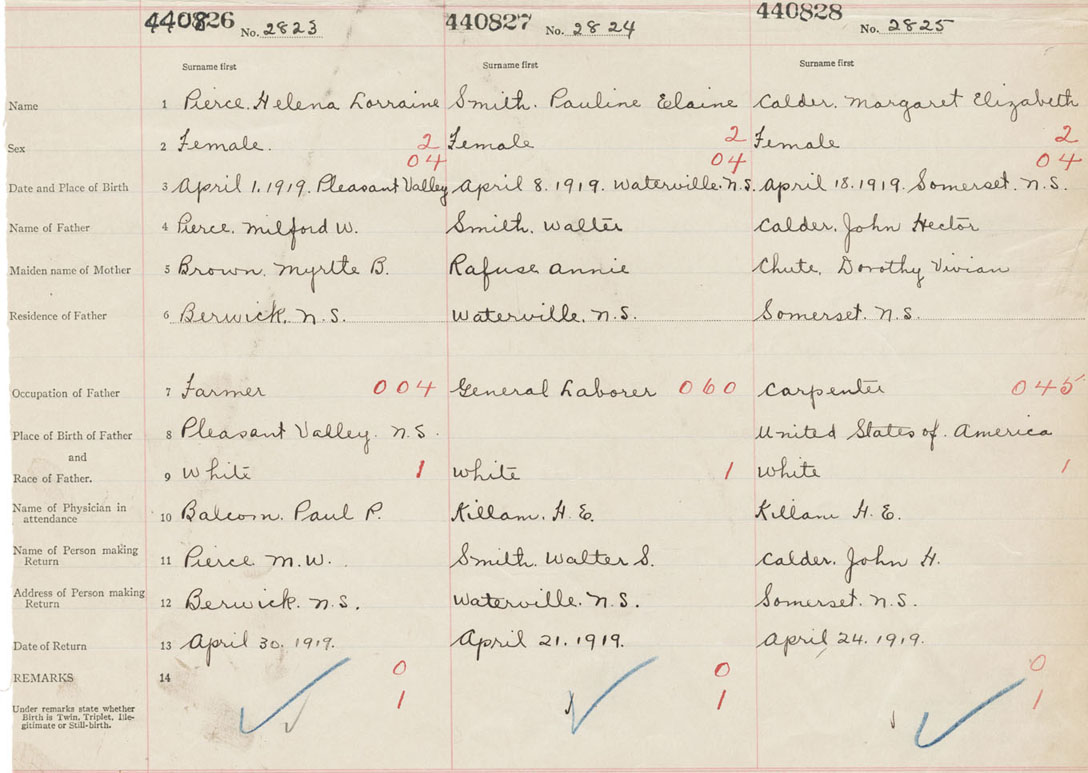 440826 No. 2823 440827 No. 2824 440828 No. 2825
Surname first Surname first Surname first
Name 1 Pierce. Helena Lorraine Smith. Pauline Elaine Calder. Margaret Elizabeth
Sex 2 Female. 2 Female 2 Female 2
04 04 04
Date and Place of Birth 3 April 1. 1919. Pleasant Valley April 8. 1919. Waterville. N.S. April 18. 1919. Somerset. N.S.
Name of Father 4 Pierce. Milford W. Smith. Walter Calder. John Hector
Maiden name of Mother 5 Brown. Myrtle B. Rafuse Annie Chute. Dorothy Vivian
Residence of Father 6 Berwick. N.S. Waterville. N.S. Somerset. N.S.
Occupation of Father 7 Farmer 004 General Laborer 060 Carpenter 045
Place of Birth of Father 8 Pleasant Valley. N.S. United States of. America
and
Race of Father. 9 White 1 White 1 White 1
Name of Physician in
attendance 10 Balcom. Paul P. Killam. H. E. Killam H. E.
Name of Person making
Return 11 Pierce M. W. Smith. Walter S. Calder. John H.
Address of Person making
Return 12 Berwick. N.S. Waterville. N.S. Somerset. N.S.
Date of Return 13 April 30. 1919. April 21. 1919. April 24. 1919.
REMARKS 14 0 0 0
Under remarks state whether 1 1 1
Birth is Twin, Triplet, Ille-
gitimate or Still-birth.